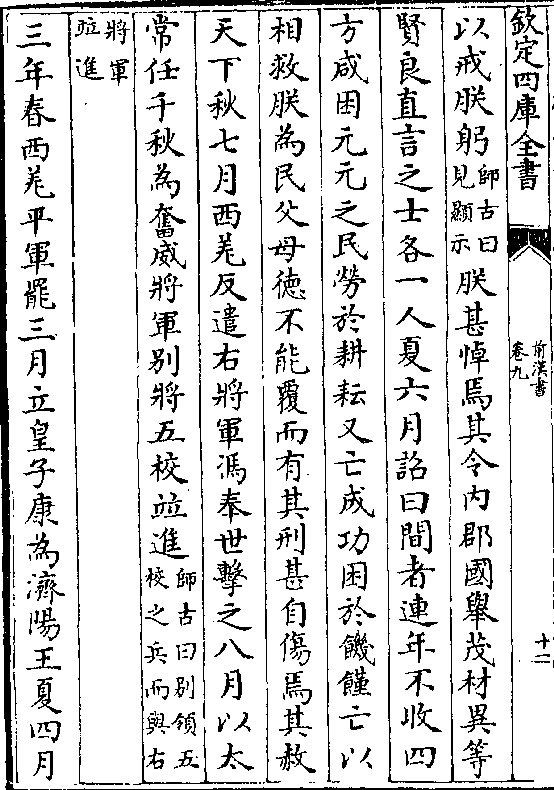 欽定四庫全書
前漢書
卷九
十二
以戒朕躬師古曰見顯示朕甚悼焉其令内郡國舉茂材異等
賢良直言之士各一人夏六月詔曰間者連年不收四
方咸困元元之民勞於耕耘又亡成功困於饑饉亡以
相救朕為民父母徳不能覆而有其刑甚自傷焉其赦
天下秋七月西羌反遣右將軍馮奉世擊之八月以太
常任千秋為奮威將軍别將五校竝進師古曰别領五校之兵而與右
將軍竝進
三年春西羌平軍罷三月立皇子康為濟陽王夏四月